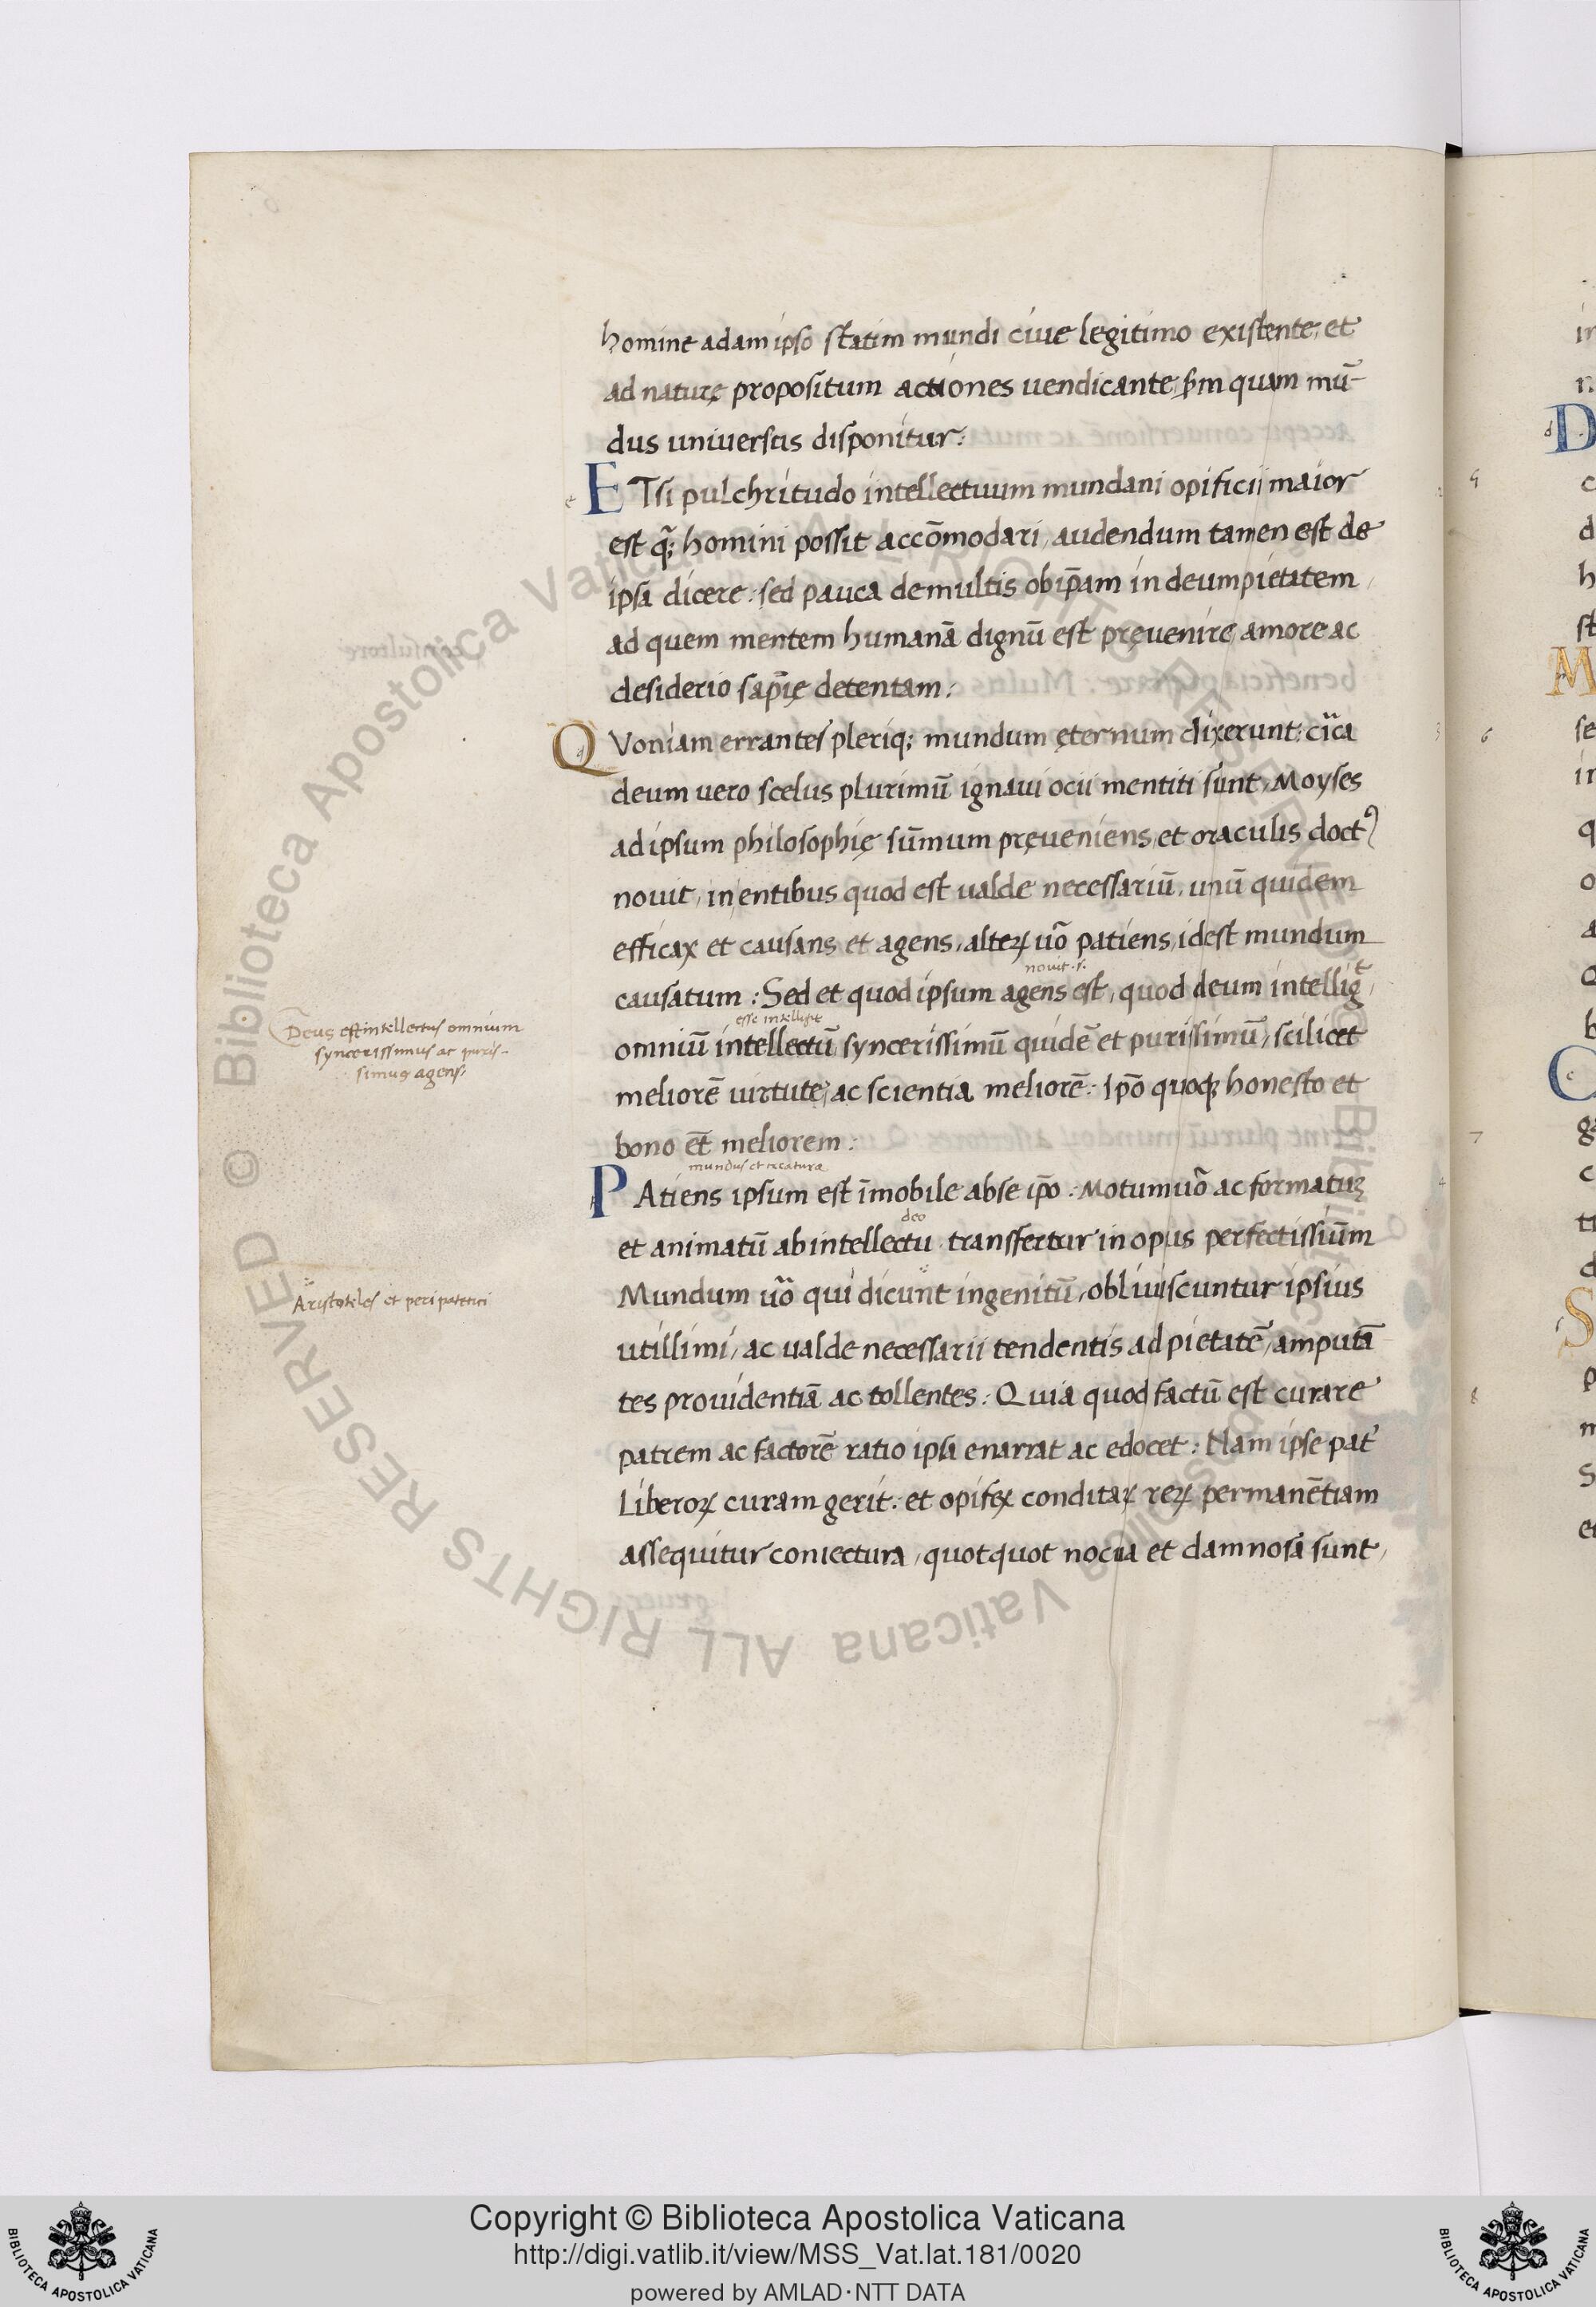 homine adam ipso statim mundi ciue legitimo existente, et
ad naturę propositum actiones uendicante, s̄m quam mū-
dus uniuersus disponitur:
ETsi pulchritudo intellectuum mundani opificii maior
est q̃; homini possit accōmodari, audendum tamen est de
ipsa dicere: sed pauca de multis ob ip̄am in deum pietatem,
ad quem mentem humanā dignū est pręuenire, amore ac
desiderio sap̄ię detentam:
QVoniam errantes pleriq; mundum ęternum dixerunt: cir̃ca
deum uero scelus plurimū ignaui ocii mentiti sunt, Moyses
ad ipsum philosophię sūmum pręueniens, et oraculis doctꝰ
nouit, in entibus quod est ualde necessariū, unū quidem
efficax et causans et agens, alteꝝ uō patiens, idest mundum
nouit .s.
causatum: Sed et quod ipsum agens est, quod deum intelligit,
esse intelligit
omniū intellectū syncerissimū quidē et purissimū, scilicet
meliorē uirtute, ac scientia meliorē: ip̄o quoq; honesto et
bono et̄ meliorem:
mundus et creatura
PAtiens ipsum est īmobile abse ip̄o: Motum uō ac formatuȝ
deo
et animatū ab intellectu transfertur in opus perfectissiūm
Mundum uō qui dicunt ingenitū, obliuiscuntur ipsius
utillimi, ac ualde necessarii tendentis ad pietatē, amputā
tes prouidentiā ac tollentes: Quia quod factū est curare
patrem ac factorē ratio ipsa enarrat ac edocet: Nam ipse pat̉
liberoꝝ curam gerit: et opifex conditaꝝ reꝝ permanētiam
assequitur coniectura, quotquot nocua et damnosa sunt,
Deus est intellectus omnium
syncerissimus ac puris-
simus agens.
Aristoteles et peripatetici
Copyright © Biblioteca Apostolica Vaticana
http://digi.vatlib.it/view/MSS_Vat.lat.181/0020
powered by AMLAD·NTT DATA